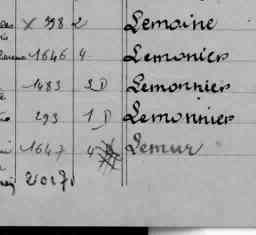 x 398 2 Lemoine
1646 4 Lemonier
1483 2 D Lemonnier
293 1 D Lemonnier
1647 4 Lemur